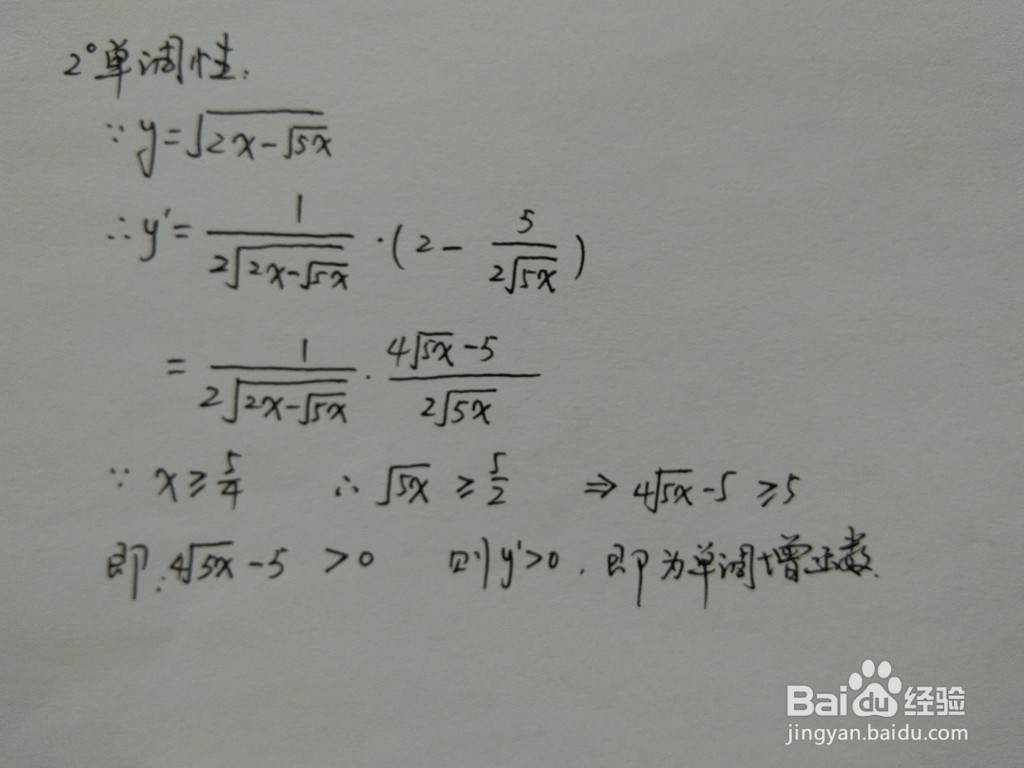 2°单调性:
∵ y=√(2x-√(5x))
∴ y'= 1/(2√(2x-√(5x))) · (2 - 5/(2√(5x)))
= 1/(2√(2x-√(5x))) · (4√(5x)-5)/(2√(5x))
∵ x≥5/4 ∴ √(5x) ≥ 5/2 ⇒ 4√(5x)-5 ≥5
即:4√(5x)-5 >0 则y'>0. 即为单调增函数.
Baidu经验
jingyan.baidu.com